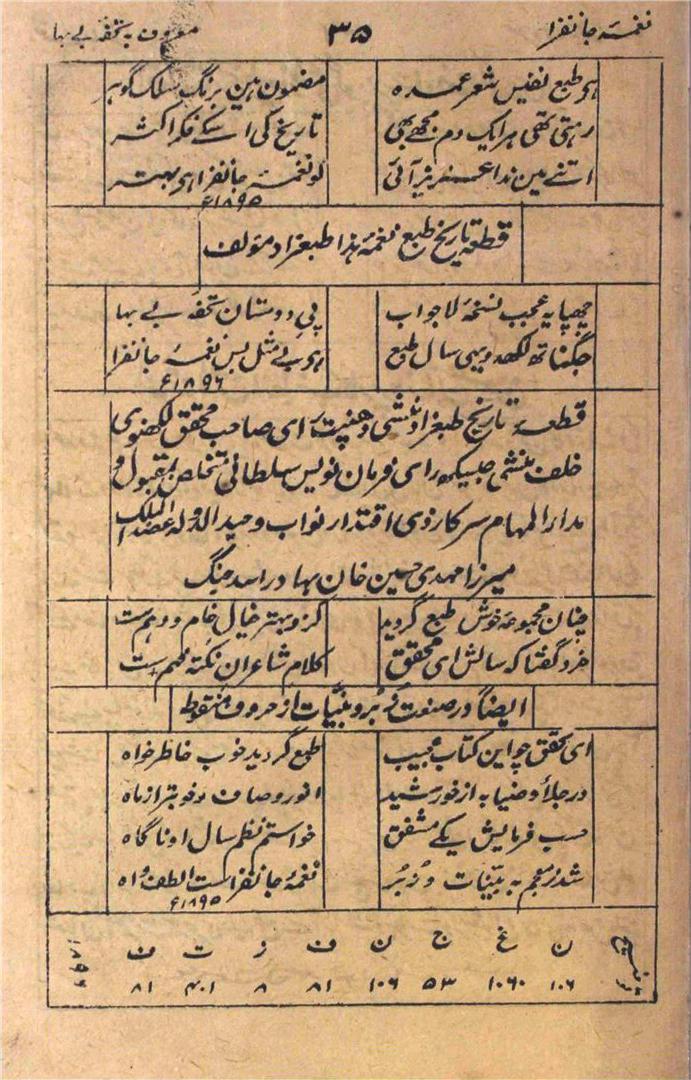 نغمۂ جانفزا ۳۵ معروف بہ تحفہ بے بہا
ہر طبع نفیس شعر عمدہ مضمون ہین برنگ سلک گوہر
رہتی تھی ہر ایک دم مجھے بھی تاریخ کی اسکے فکر اکثر
اتنے مین ندا عزیز آئی لو نغمۂ جانفزا ہی بہتر
۱۸۹۵ء
قطعہ تاریخ طبع نغمۂ ہذا طبعزاد مؤلف
چھپا یہ عجب نسخۂ لاجواب پے دوستان تحفۂ بے بہا
جگناتھ لکھدو یہی سال طبع ہی بے مثل بس نغمۂ جانفزا
۱۸۹۶ء
قطعۂ تاریخ طبعزاد منشی دھنپت رای صاحب محقق لکھنوی
خلف منشی جیسکھ رای فرمان نویس سلطانی متخلص بمقبول و
مدار المہام سرکار ذی اقتدار نواب وحید الدولہ عضد الملک
میرزا مہدی حسین خان بہادر اسد جنگ
چنان مجموعۂ خوش طبع گردید کزو بہتر خیال خام و وہم ست
خرد گفتا کہ سالش ای محقق کلام شاعران نکتہ فہم ست
ایضاً در صنعت زبر و بینات از حروف منقوط
ای محقق چو این کتاب عجیب طبع گردید خوب خاطر خواہ
در جلا و ضیا بہ از خورشید انور و صاف و خوبتر از ماہ
حسب فرمایش یکے مشفق خواستم نظم سال او ناگاہ
شد ز معجم بہ بینات و زبر نغمۂ جانفزاست الطف واہ
۱۸۹۵ء
توضیح ن غ ج ن ف ز ت ف
۱۰۶ ۱۰۶۰ ۵۳ ۱۰۶ ۸۱ ۸ ۴۰۱ ۸۱ ۱۸۹۶